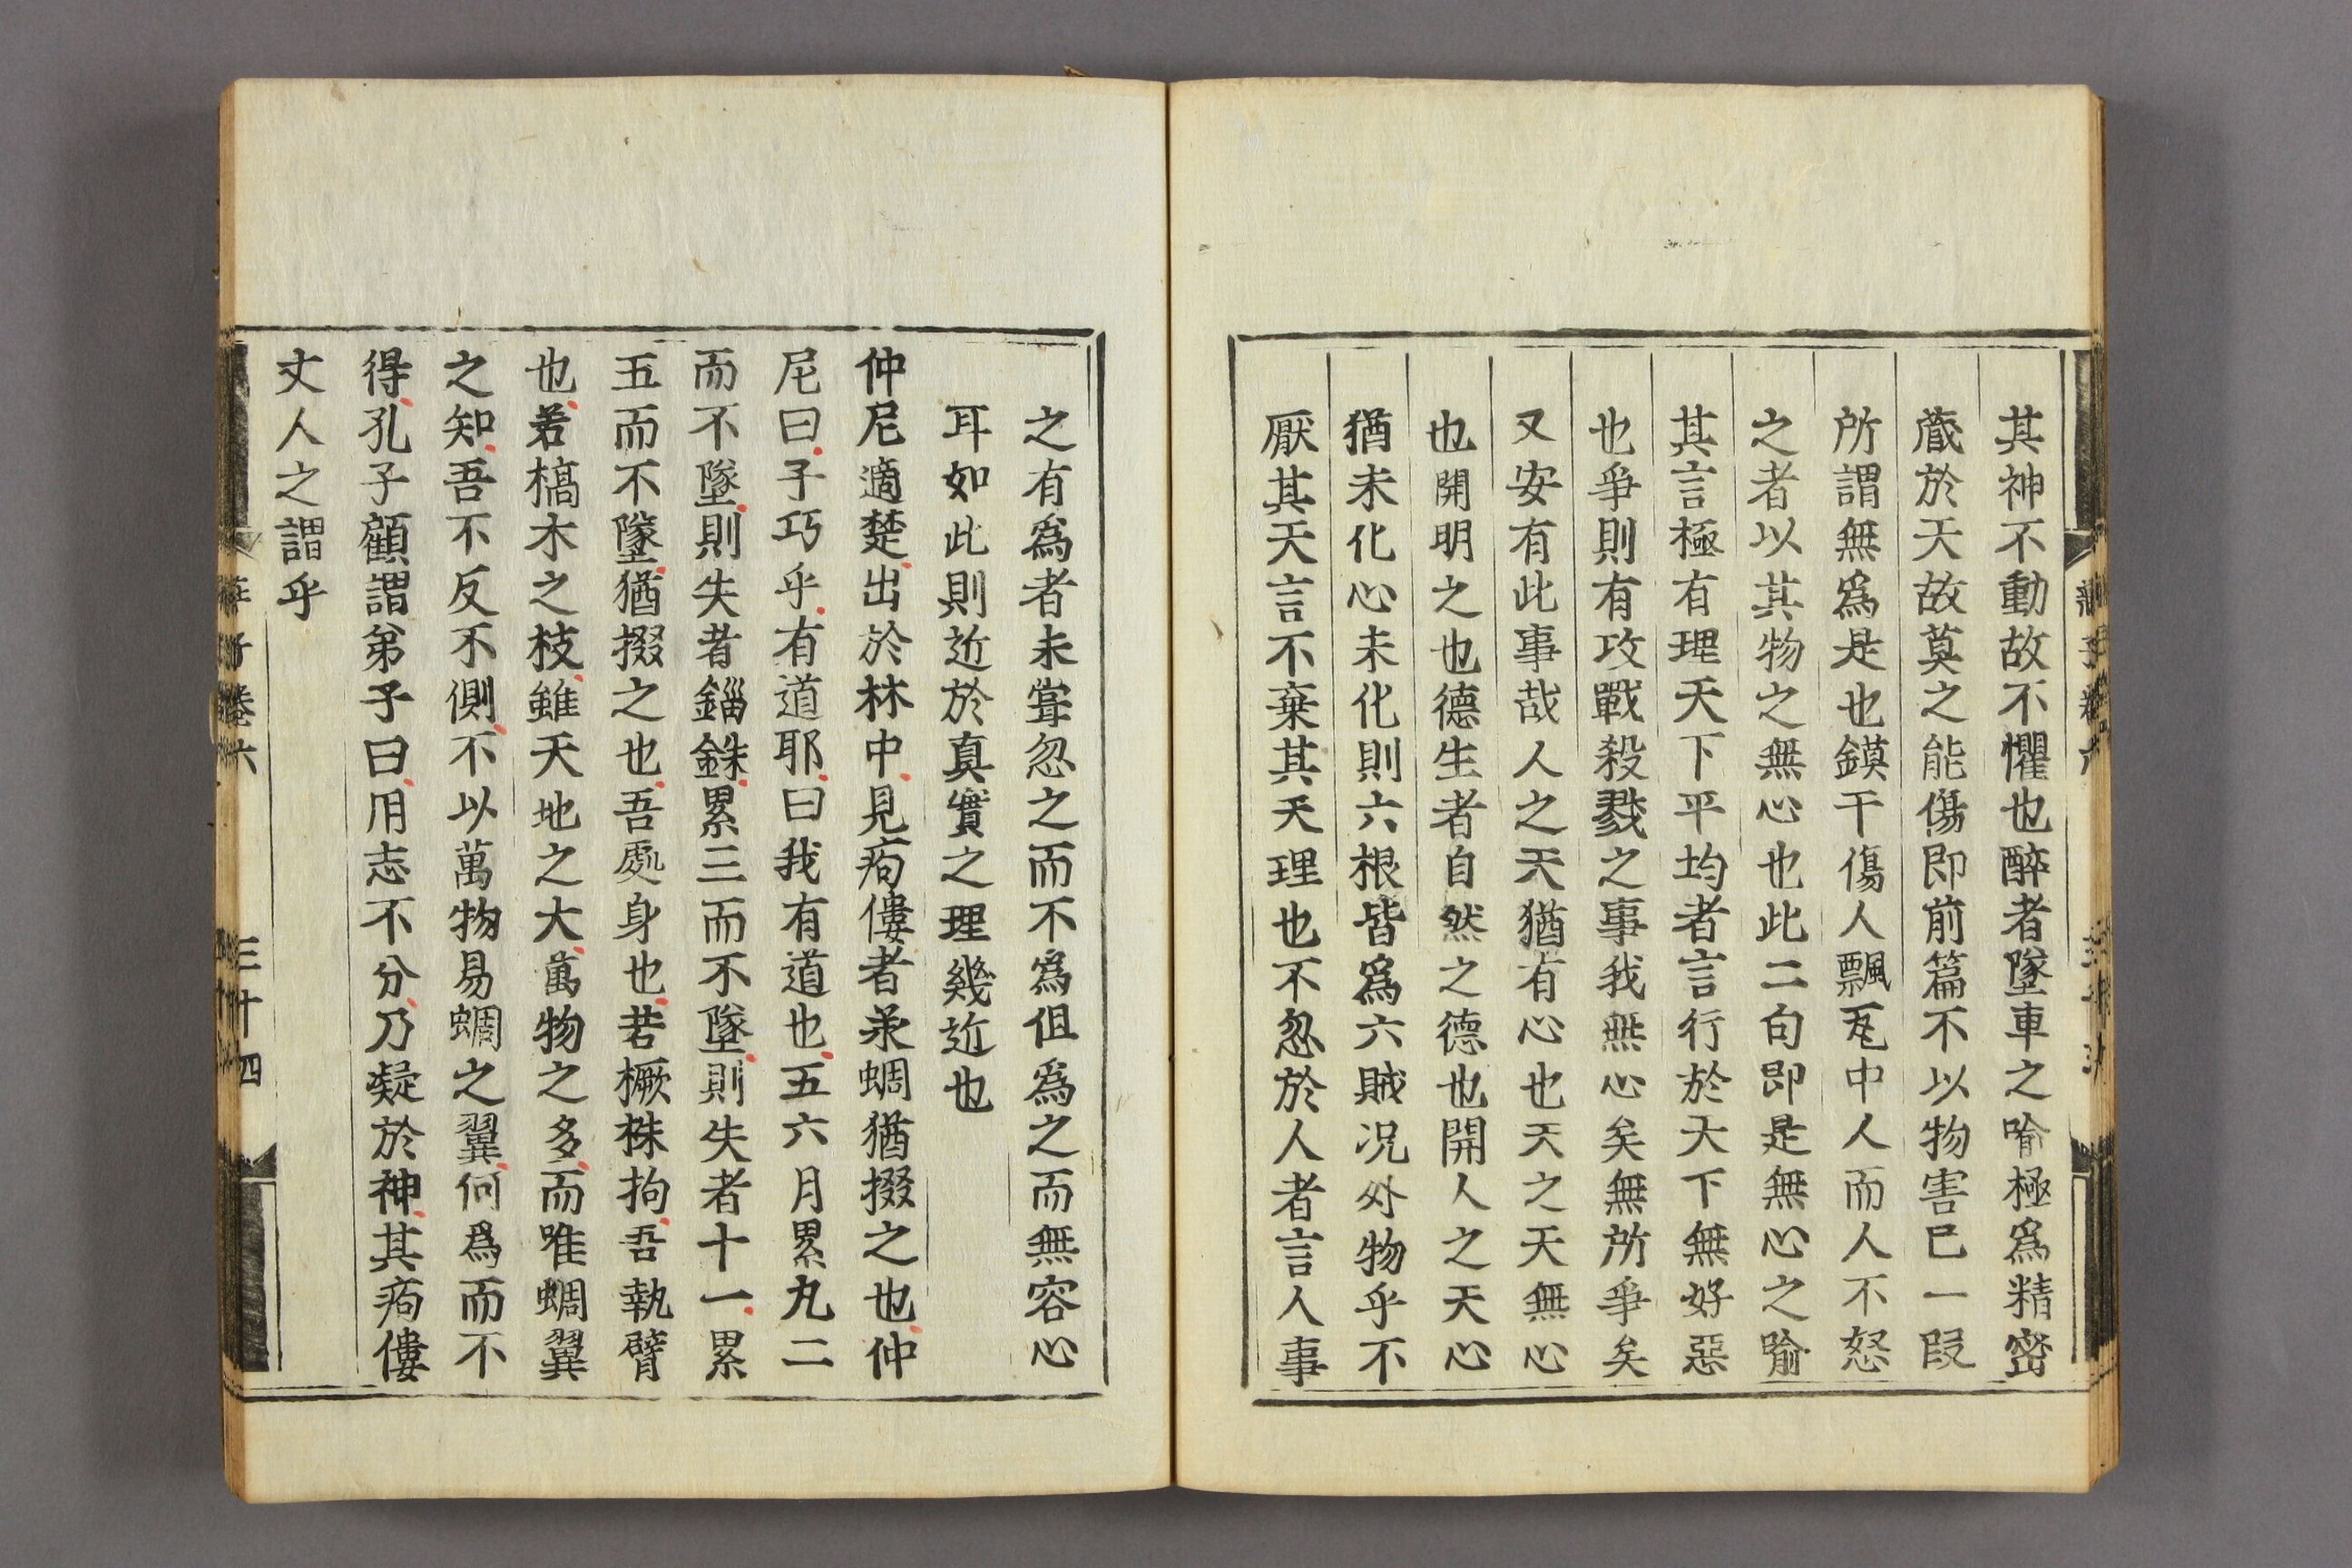 其神不動故不懼也醉者墜車之喻極爲精密
蔵於天故莫之能傷即前篇不以物害已一段
所謂無爲是也鏌干傷人飄瓦中人而人不怒
之者以其物之無心也此二句即是無心之喻
其言極有理天下平均者言行於天下無好惡
也爭則有攻戰殺戮之事我無心矣無所爭矣
又安有此事哉人之天猶有心也天之天無心
也開明之也德生者自然之德也開人之天心
猶未化心未化則六根皆爲六賊况外物乎不
厭其天言不棄其天理也不忽於人者言人事
之有爲者未甞忽之而不爲但爲之而無容心
耳如此則近於真實之理幾近也
仲尼適楚出於林中見痀僂者承蜩猶掇之也仲
尼曰子巧乎有道耶曰我有道也五六月累丸二
而不墜則失者錙銖累三而不墜則失者十一累
五而不墜猶掇之也吾處身也若橛株拘吾執臂
也若槁木之枝雖天地之大萬物之多而唯蜩翼
之知吾不反不側不以萬物易蜩之翼何爲而不
得孔子顧謂弟子曰用志不分乃凝於神其痀僂
丈人之謂乎
莊子卷六
三十四